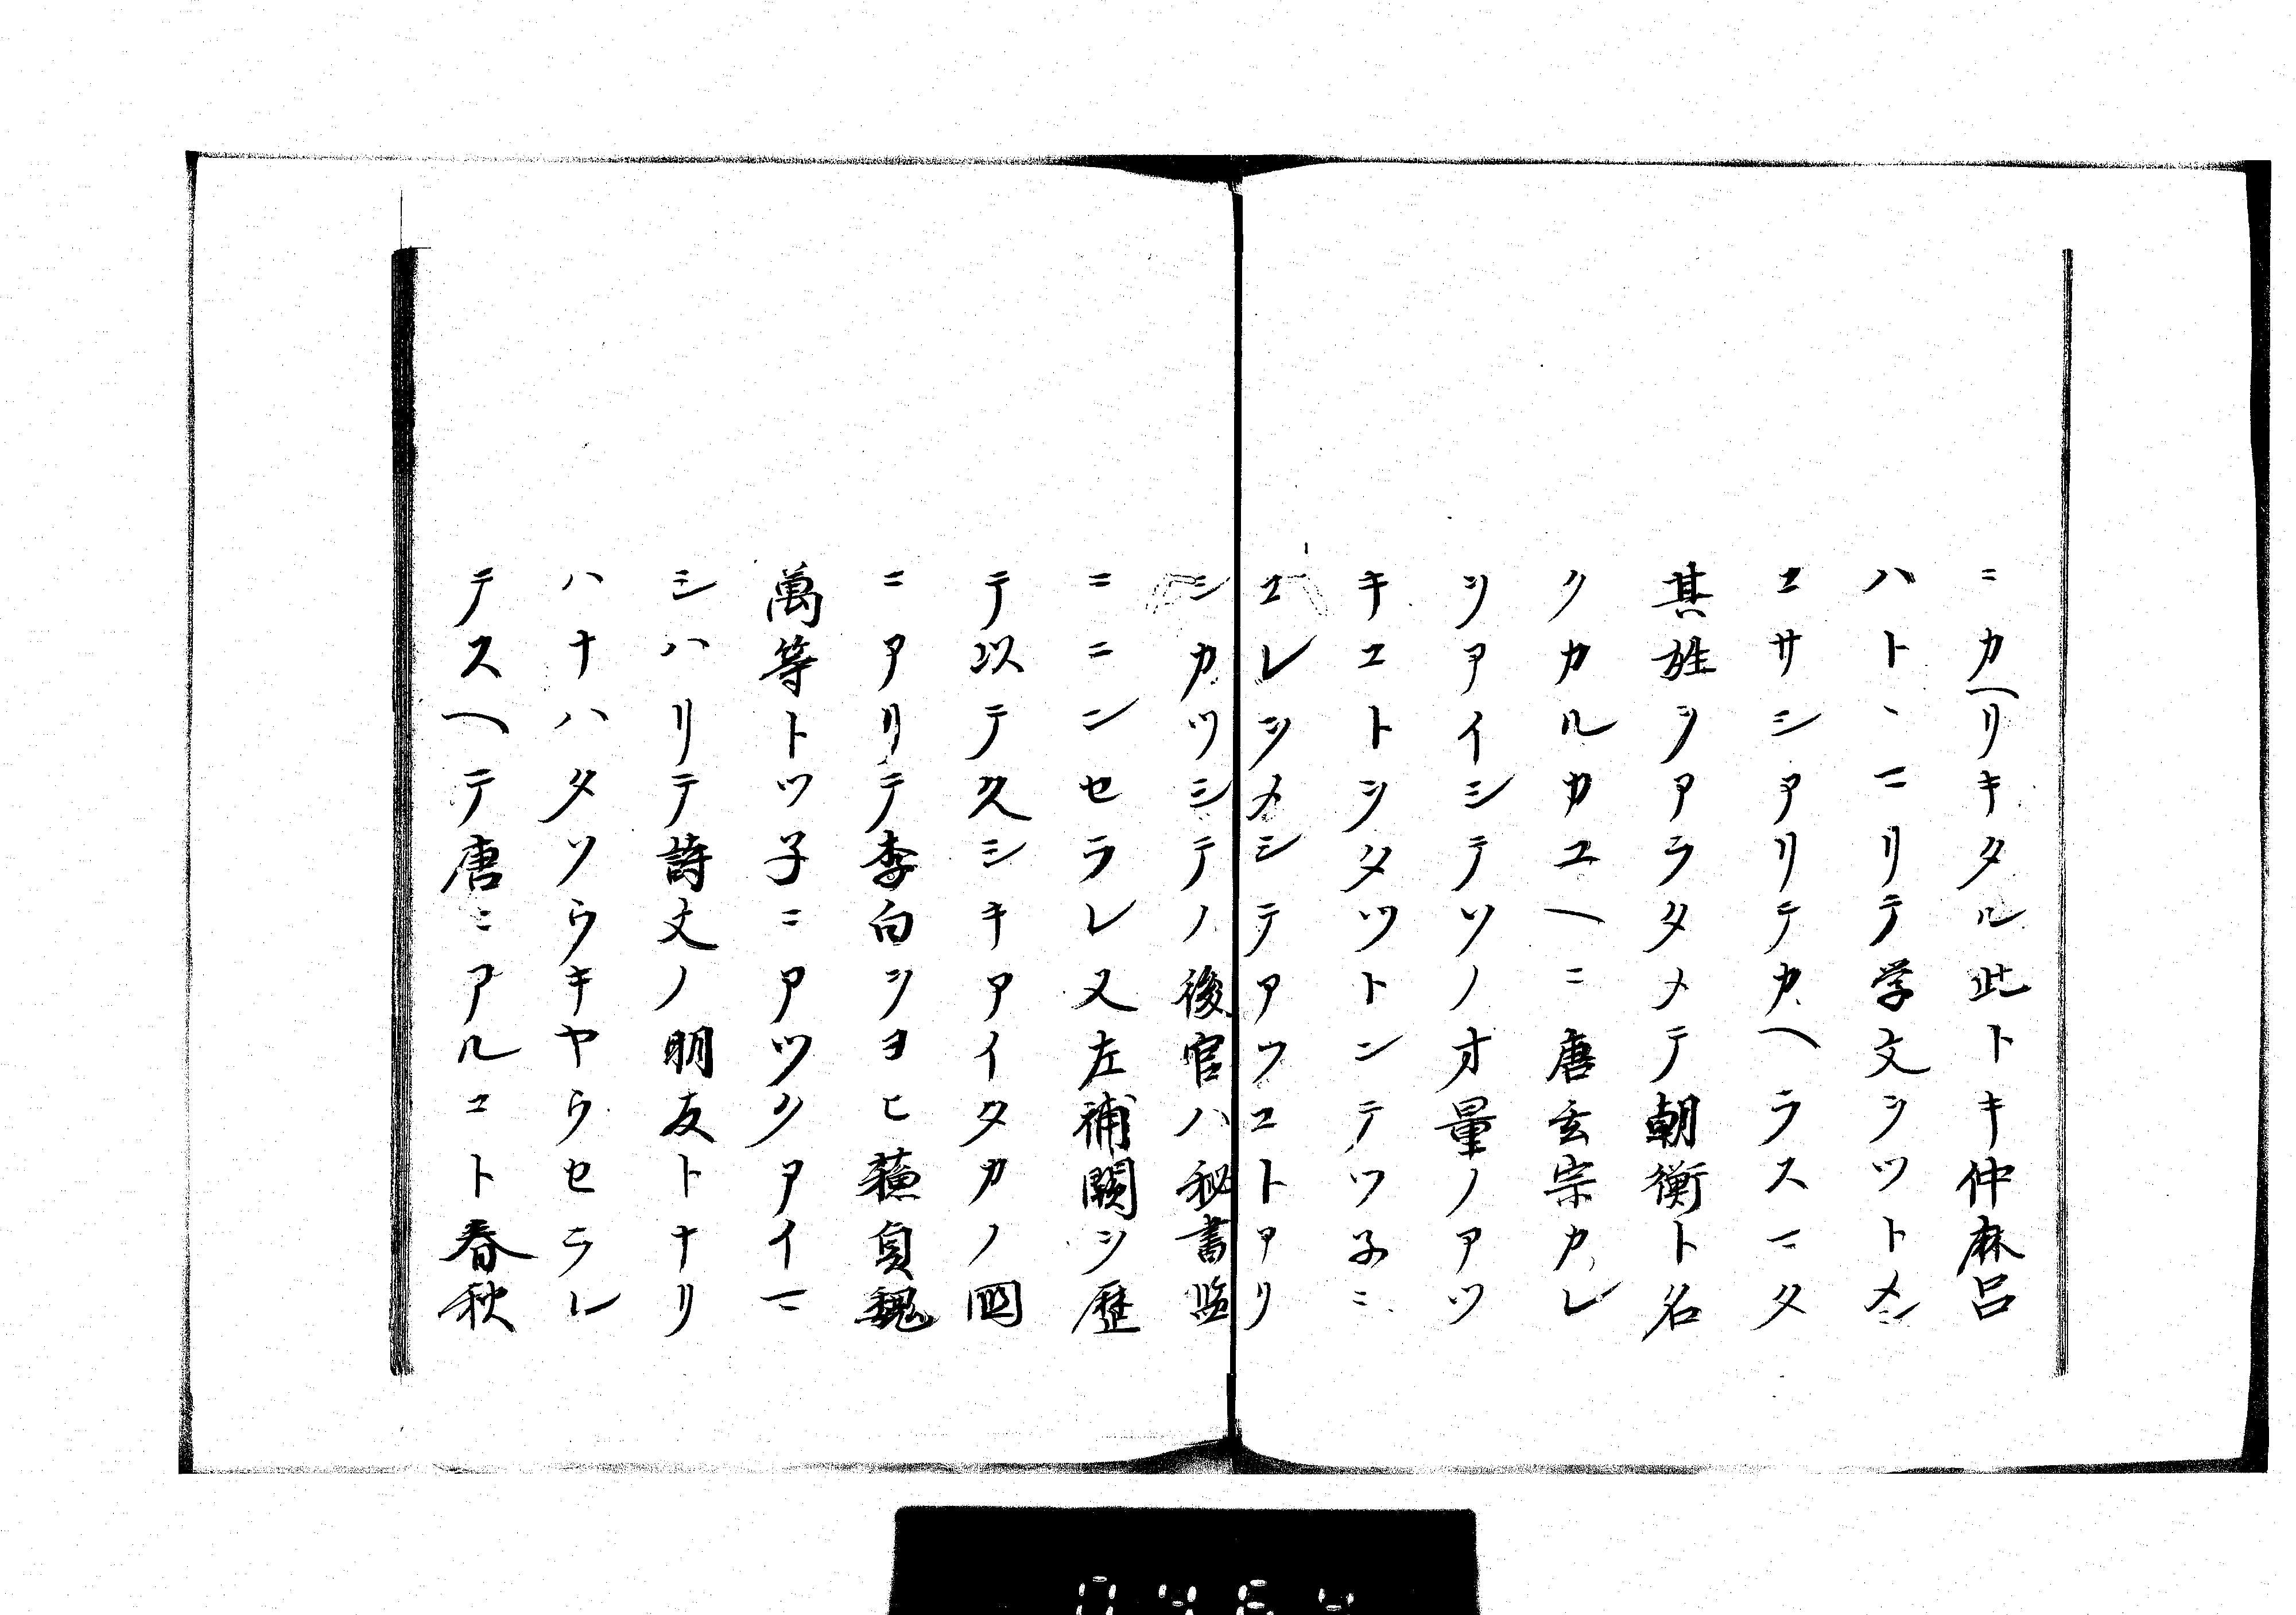 ニカヘリキタル此トキ仲麻呂
ハトヽマリテ学文ヲツトメシ
コサシアリテカヘラスマタ
其姓ヲアラタメテ朝衡ト名
クカルカユヘニ唐玄宗カレ
ヲアイシテソノオ量ノアツ
キコトヲタツトンテツ子ニ
コレヲメシテアフコトアリ
シカツシテノ後官ハ秘書監
ニニンセラレ又左補闕ヲ歴
テ以テ久シキアイタカノ國
ニアリテ李白ヲヨヒ蘓負魏
萬等トツ子ニアツクアイマ
シハリテ詩文ノ明友トナリ
ハナハタソウキヤウセラレ
テスヘテ唐ニアルコト春秋